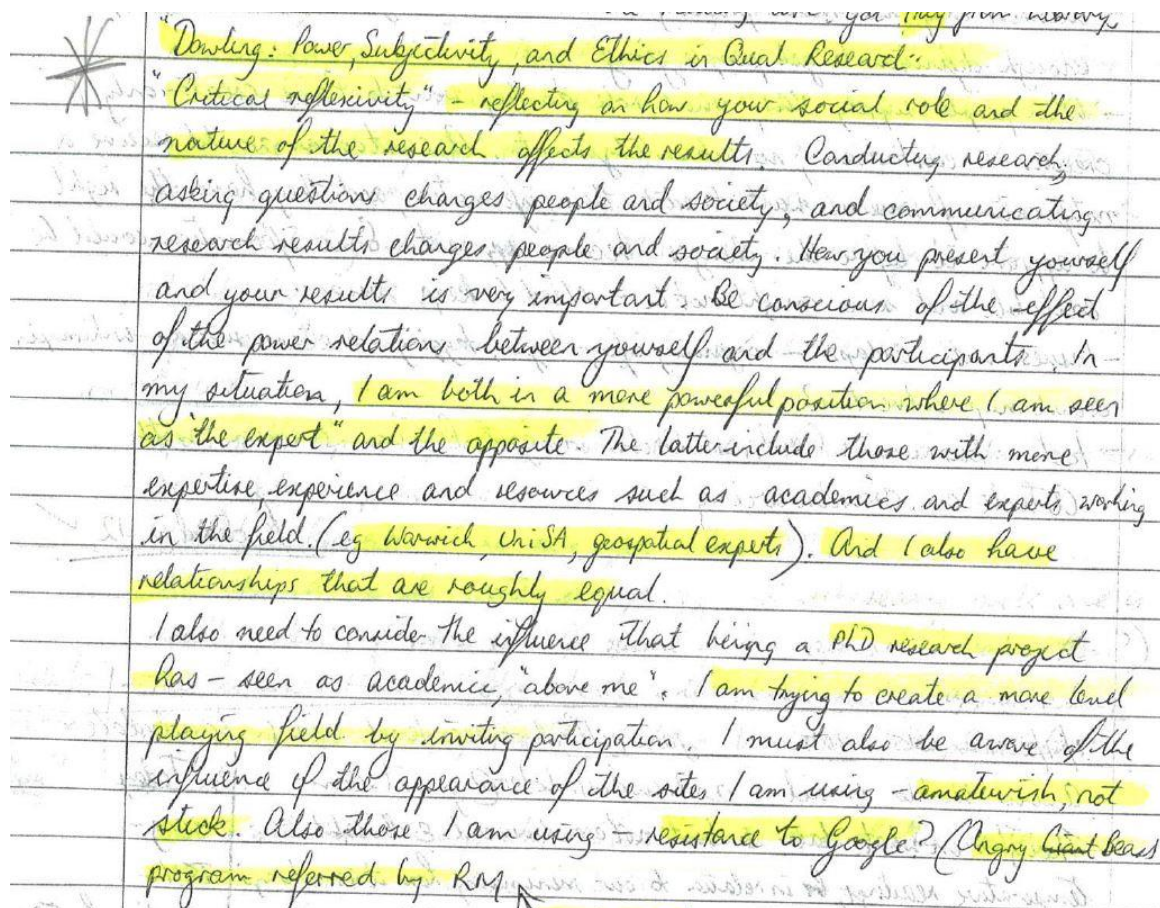 you may from library
"Dowling: Power, Subjectivity, and Ethics in Qual Research:
"Critical reflexivity" - reflecting on how your social role and the
nature of the research affects the results. Conducting research,
asking questions changes people and society, and communicating
research results changes people and society. How you present yourself
and your results is very important. Be conscious of the effect
of the power relations between yourself and the participants. In
my situation, I am both in a more powerful position where I am seen
as "the expert" and the opposite. The latter include those with more
expertise, experience and resources such as academics and experts working
in the field. (eg Warwick, UniSA, geospatial experts). And I also have
relationships that are roughly equal.
I also need to consider the influence that being a PhD research project
has - seen as academic, "above me". I am trying to create a more level
playing field by inviting participation. I must also be aware of the
influence of the appearance of the sites I am using - amateurish, not
slick. Also those I am using - resistance to Google? (Angry Beass
program referred by RM)